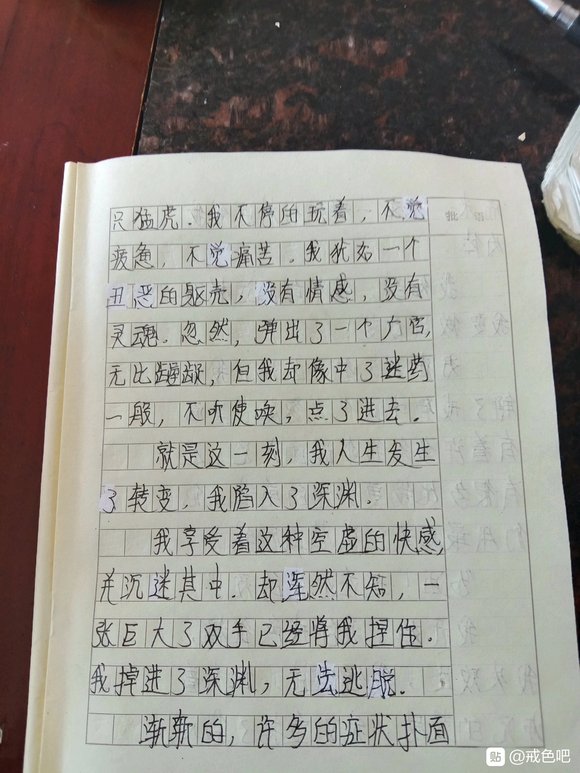 只猛虎.我不停的玩着,不觉
疲惫,不觉痛苦.我犹如一个
丑恶的驱壳,没有情感,没有
灵魂.忽然,弹出了一个广告,
无比龌龊,但我却像中了迷药
一般,不听使唤,点了进去.
就是这一刻,我人生发生
了转变,我陷入了深渊.
我享受着这种空虚的快感,
并沉迷其中.却浑然不知,一
张巨大了双手已经将我捏住.
我掉进了深渊,无法逃脱.
渐渐的,许多的症状扑面
批语
贴 @戒色吧